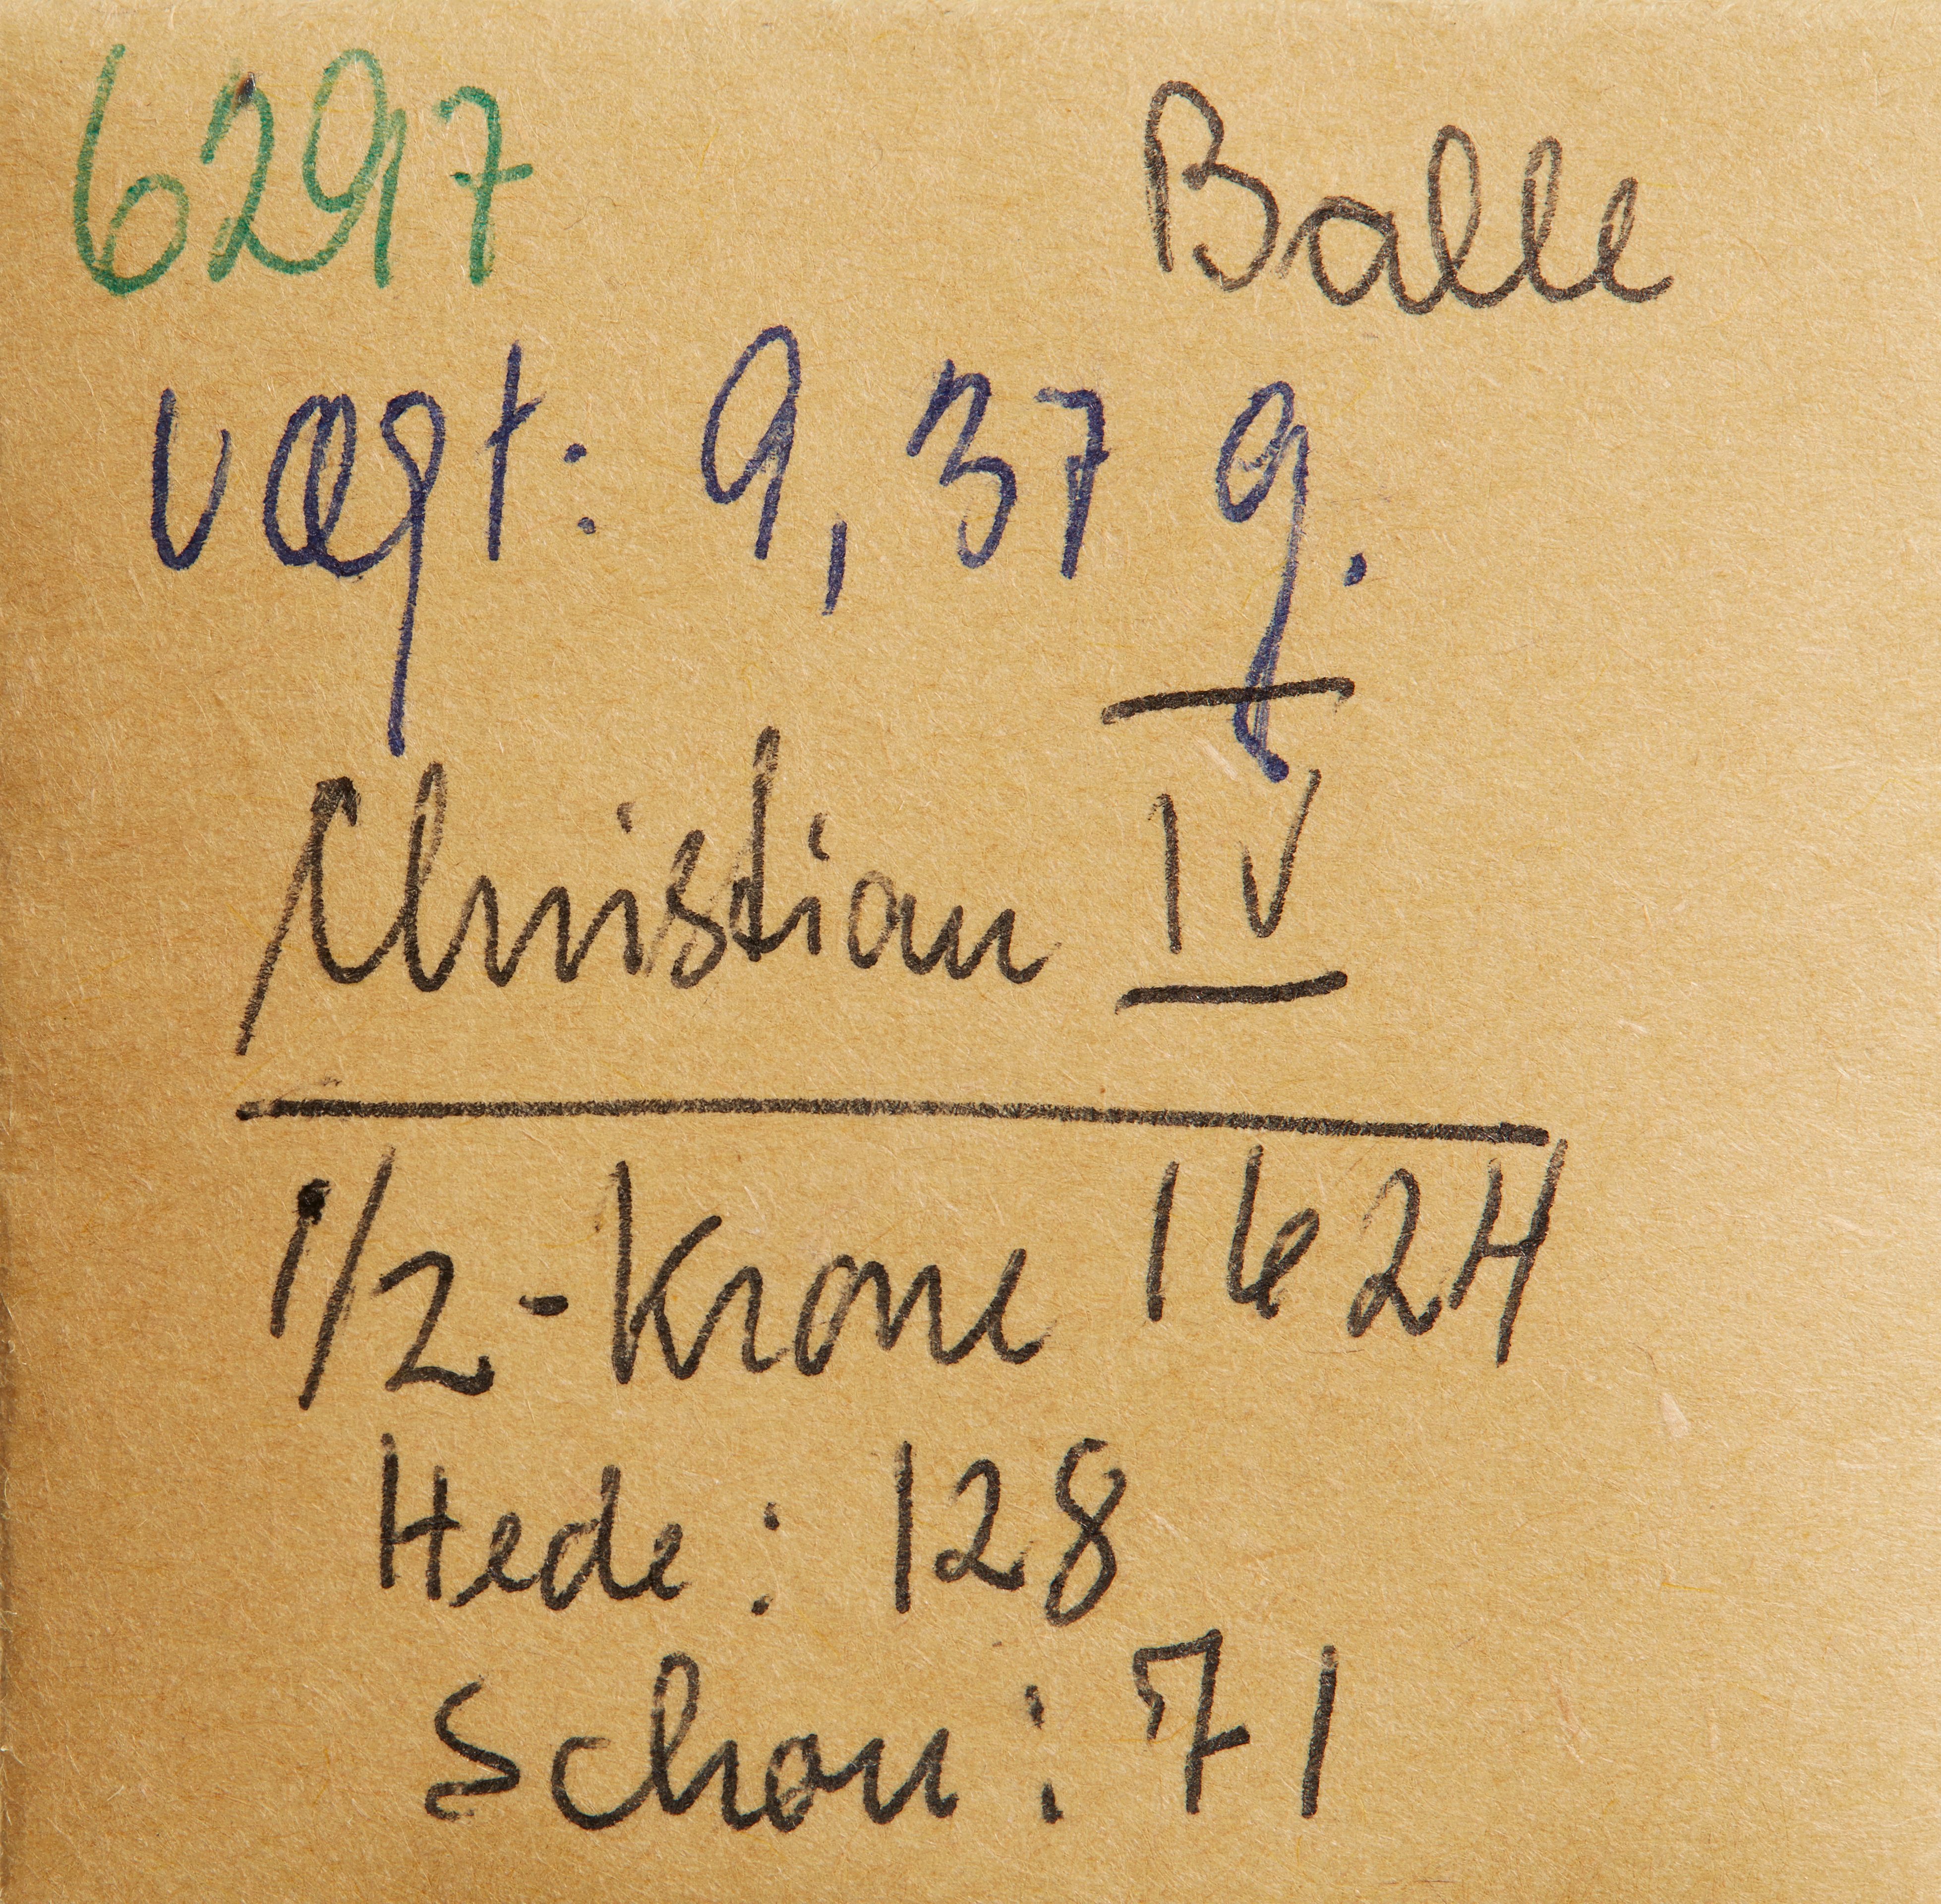 6297 Balle
vægt: 9,37 g.
Christian IV
1/2-Krone 1624
Hede: 128
Schou: 71